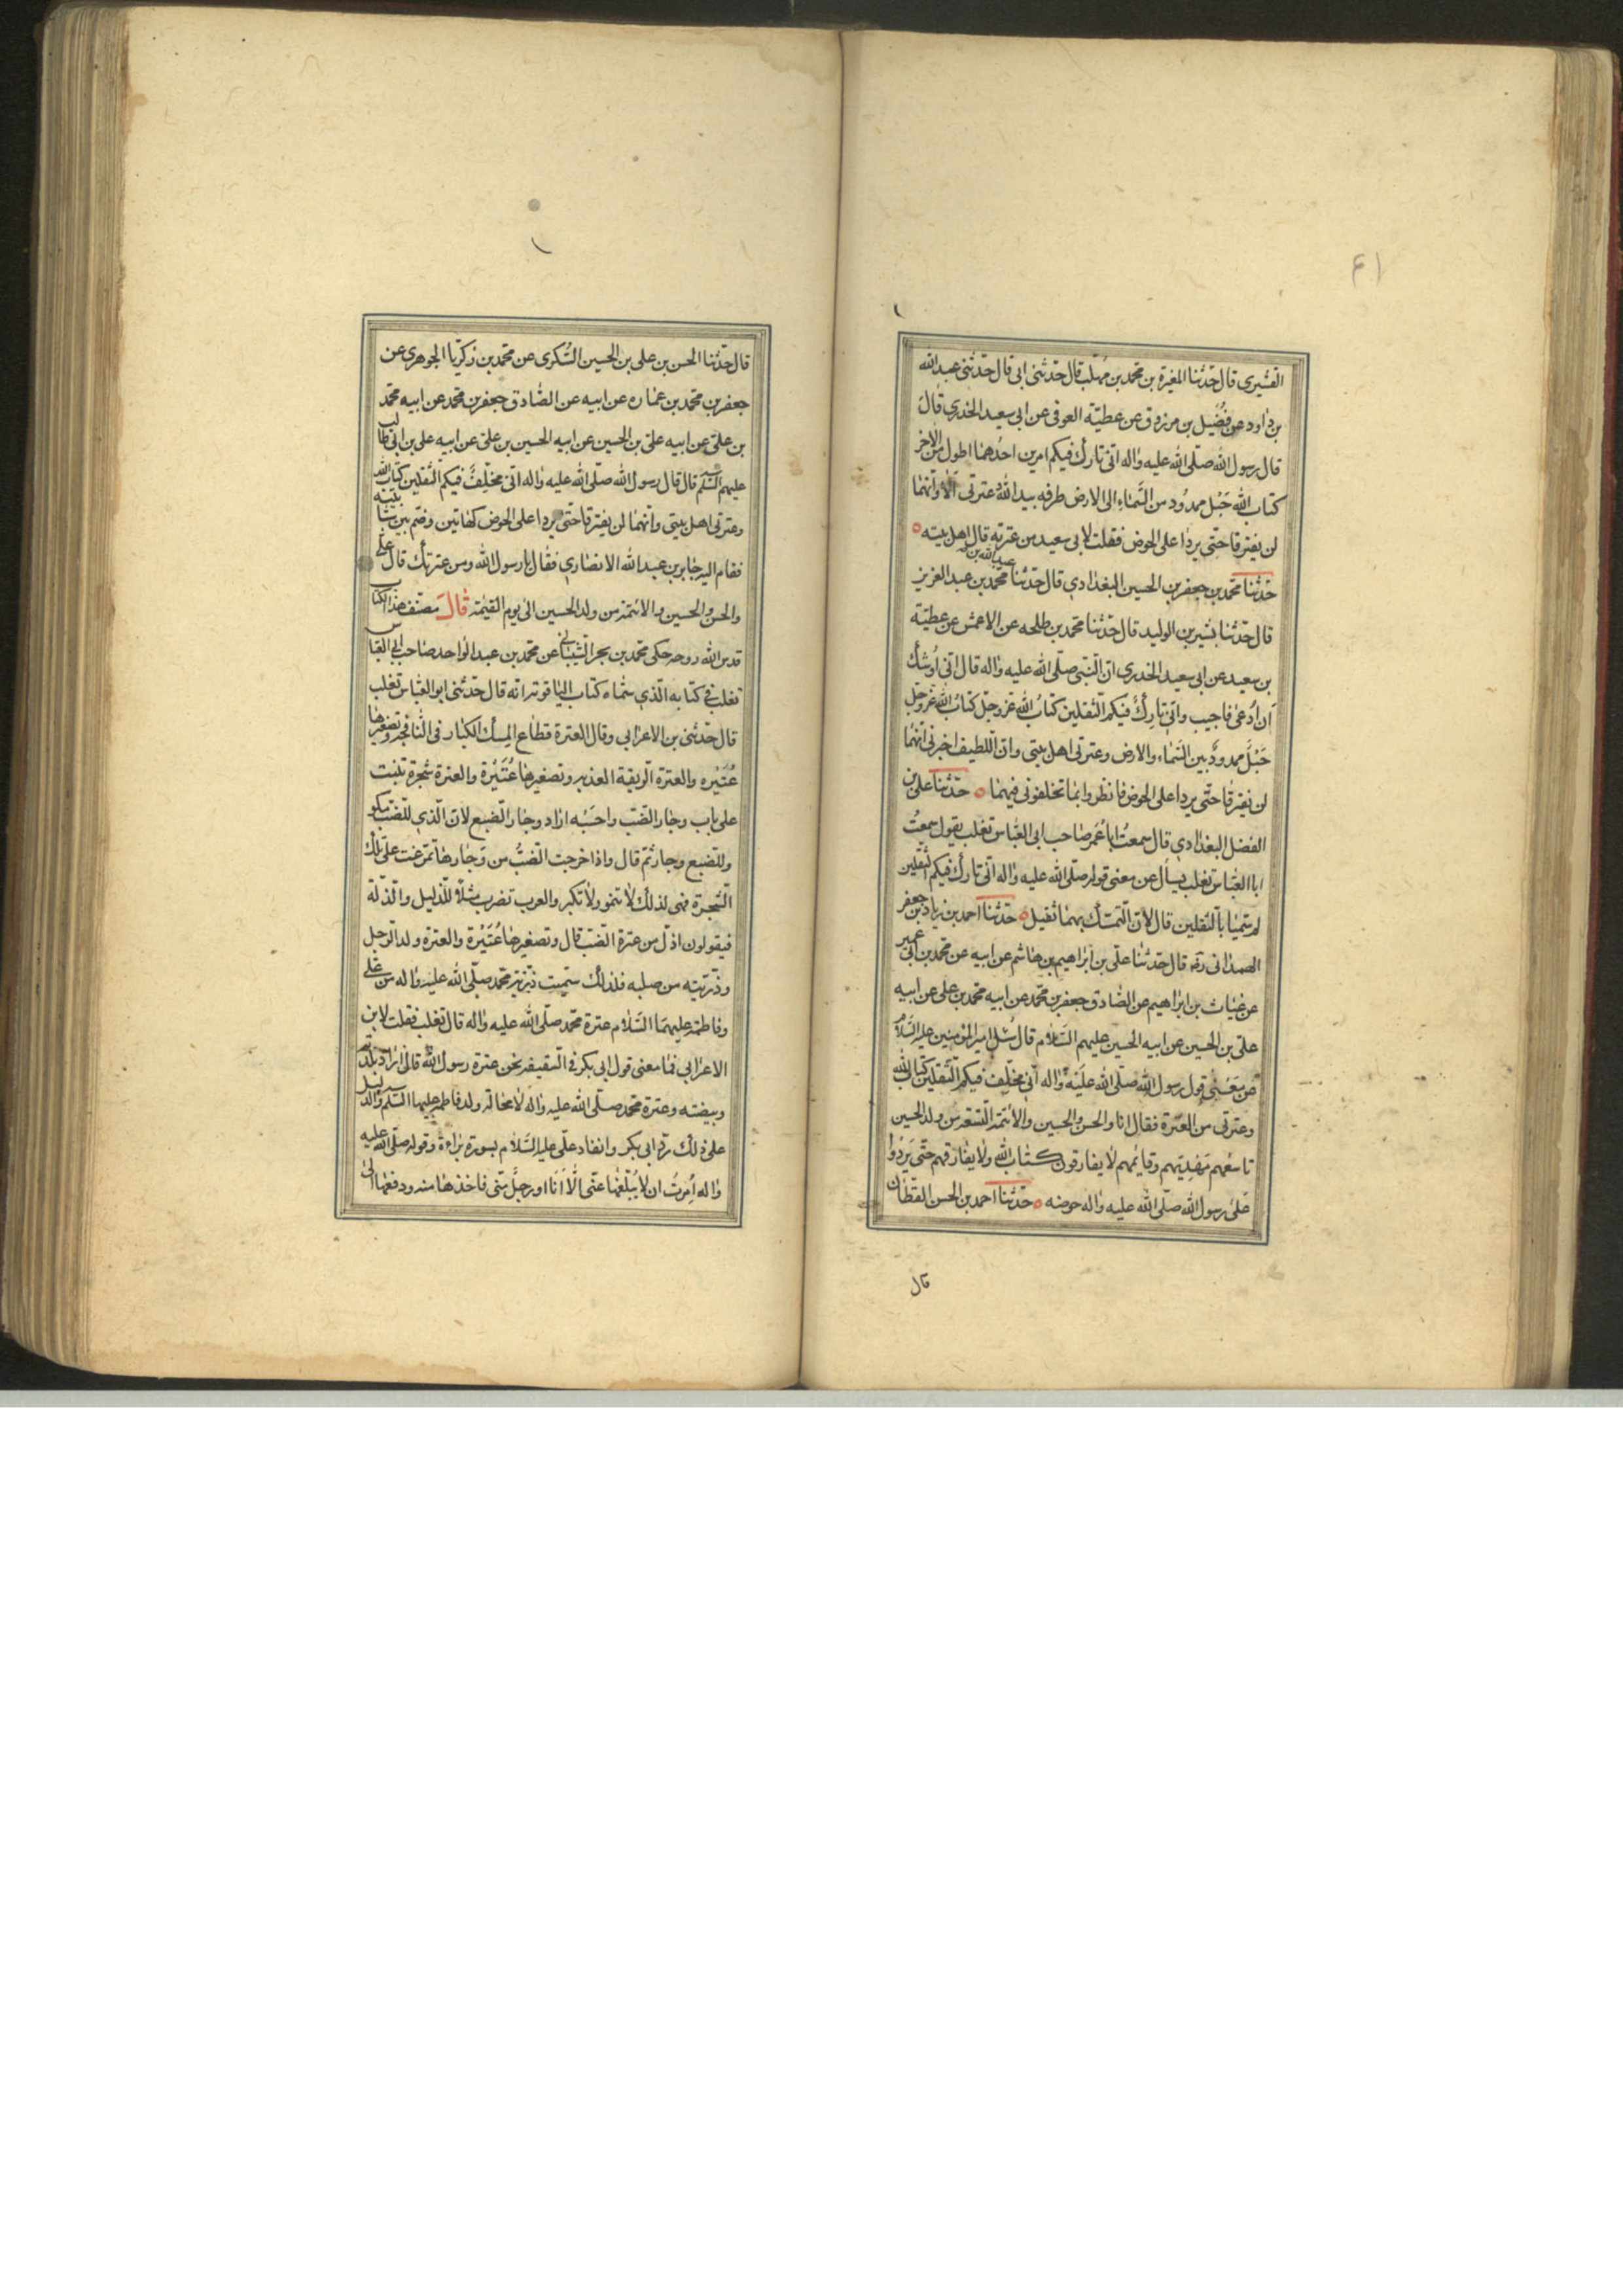 ٤١
القشیری قال حدّثنا المغیرة بن محمد بن مهلب قال حدثنی ابی قال حدّثنی عبدالله
بن داود عن فُضَیل بن مرزوق عن عطیّة العوفی عن ابی سعید الخدری قالَ
قال رسول الله صلّی الله علیه واله انی تارك فیکم امرین احدُهما اطول من الاخر
کتاب الله حَبْل ممدُود من السَّماءِ الی الارض طرفه بید اللهُ وعترتی اَلا وانّهما
لن یفترقا حتی یردا علی الحوض فقلت لابی سعید من عترته قال اهل بیته
حَدّثنا محمد بن جعفر بن الحسین البغدادی قال حَدّثنا عبدالله بن محمد بن عبد العزیز
قال حَدّثنا بشیر بن الولید قال حَدّثنا محمد بن طلحه عن الاعمش عن عطیّة
بن سعید عن ابی سعید الخدری انّ النّبی صلّی الله علیه واله قال انّی اُوشك
اَن اُدعیٰ فاجیب وانّی تارِكٌ فیکم الثّقلین کتابُ الله عزوجل کتابُ الله عزوجل
حَبْلٌ ممدودٌ بین السَّماء والارض وعترتی اهل بیتی وانّ اللطیف اخبرنی انّهما
لن یفترقا حتّی یردا علی الحوض فانظروا بما تخلفونی فیهما حَدّثنا علی بن
الفضل البغدادی قال سمعتُ ابا عُمَر صاحب ابی العبّاس تغلب یقول سمعتُ
ابا العبّاس تغلب یسأل عن معنی قوله صلّی الله علیه واله انّی تارك فیکم الثقلین
لم سمّیا بالثقلین قال لانّ التمسّك بهما ثقیل حَدّثنا احمد بن زیاد بن جعفر
الهمدانی رضه قال حَدّثنا علی بن ابراهیم بن هاشم عن ابیه عن محمد بن ابی عمیر
عن غیاث بن ابراهیم عن الصّادق جعفر بن محمّد عن ابیه محمّد بن علی عن ابیه
علی بن الحسین عن ابیه الحسین علیهم السّلام قال سُئل امیر المؤمنین علیه السّلامُ
عن مَعْنی قول رسول الله صلّی الله عَلَیْهِ واله انی مخلّف فیکم الثّقلین کتاب الله
وعترتی من العترة فقال انا والحسن والحسین والائمّة التسعة من ولد الحسین
تاسعُهم مَهْدِیّهم وقایمُهم لا یفارقون کتاب الله ولا یفارقهم حتّی یَردُوا
عَلیٰ رسول الله صلّی الله علیه واله حوضه حَدّثنا احمد بن الحسن القطّان
قال
قال حدّثنا الحسن بن علی بن الحسین السُّکری عن محمّد بن زکریّا الجوهری عن
جعفر بن محمّد بن عماره عن ابیه عن الصّادق جعفر بن محمّد عن ابیه محمّد
بن علی عن ابیه علی بن الحسین عن ابیه الحسین بن علی عن ابیه علی بن ابی طالب
علیهم السّلم قال قال رسول الله صلّی الله علیه واله انّی مخلِّفٌ فیکم الثّقلین کتاب الله
وعترتی اهل بیتی وانّهما لن یفترقا حتّی یردا علی الحوض کهاتین وضم بین سبّابتیه
فقام الیه جابر بن عبدالله الانصاری فقال یا رسول الله ومن عترتك قال علی
والحسن والحسین والائمّة من ولد الحسین الی یوم القیٰمة قَالَ مصنّف هذا الکتاب
قدس الله روحه حکی محمّد بن بحر الشّیبانی عن محمّد بن عبد الواحد صاحب ابی العبّاس
تغلب فی کتابه الّذی سمّاه کتاب الیاقوتة انّه قال حَدّثنی ابو العبّاس تغلب
قال حَدّثنی بن الاعرابی وقال العترة قطاع المِسك الکبار فی النّافجة وتصغیرها
عُتَیْره والعترة الرّیقة العذبه وتصغیرها عُتَیْرَة والعترة شجرة تنبت
علی باب وجار الضّب واحسَبُه اراد وجار الضّبع لانّ الّذی للضّب مکو
وللضّبع وجار ثمّ قال واذا خرجت الضّبُّ من وَجارها تمرّغت علی تلك
الشّجرة فهی لذلك لا تنمو ولا تکبر والعرب تضرب مثلاً للذّلیل والذّلة
فیقولون اذلّ من عترة الضّبّ قال وتصغیرها عُتَیْرة والعترة ولد الرّجل
وذرّیّته من صلبه فلذلك سمّیت ذرّیّة محمّد صلّی الله علیه واله من علی
وفاطمة علیهما السّلام عترة محمّد صلّی الله علیه واله قال تغلب فقلت لابن
الاعرابی فما معنی قول ابی بکر فی السّقیفة نحن عترة رسول الله قال اراد بلدته
وبیضته وعترة محمّد صلّی الله علیه واله لا محالة ولد فاطمة علیها السّلم والدّلیل
علی ذلك ردّ ابی بکر وانفاد علی علیه السّلام بسورة براءة وقوله صلّی الله علیه
واله اُمِرتُ ان لا یُبلّغها عنّی الّا اَنَا اَو رجلٌ منّی فاخذها منه ودفعها الی